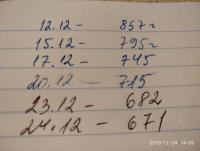 12.12 - 857г
15.12 - 795г
17.12 - 745
20.12 - 715
23.12 - 682
24.12 - 671
2019/12/24 14:09